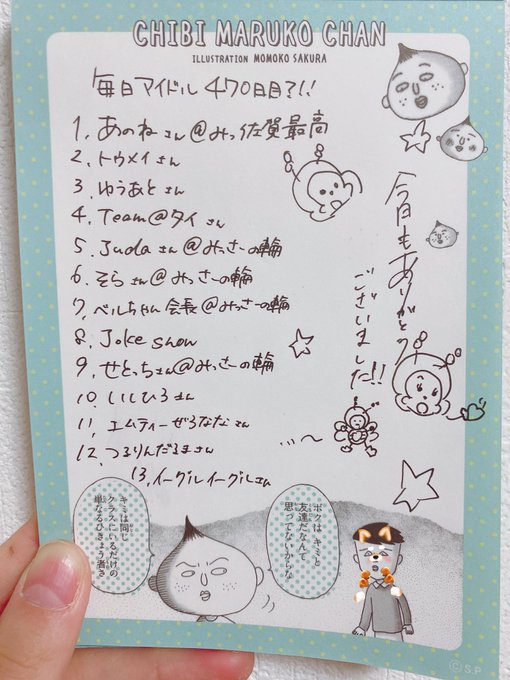 CHIBI MARUKO CHAN
ILLUSTRATION MOMOKO SAKURA
毎日アイドル 470日目?!!
1, あのねさん@みっ佐賀最高
2, トウメイさん
3, ゆうあとさん
4, Team@タイさん
5, Judaさん@みっさーの輪
6, そらさん@みっさーの輪
7, ベルちゃん会長@みっさーの輪
8, Joke show
9, せとっちさん@みっさーの輪
10, いしひろさん
11, エムティーぜろななさん
12, つるりんだるまさん
13, イーグルイーグルさん
今日もありがとう
ございました!!
ボクはキミと
友達だなんて
思ってないからな
キミは同じ
クラスにいるだけの
単なるひきょう者さ
©S.P